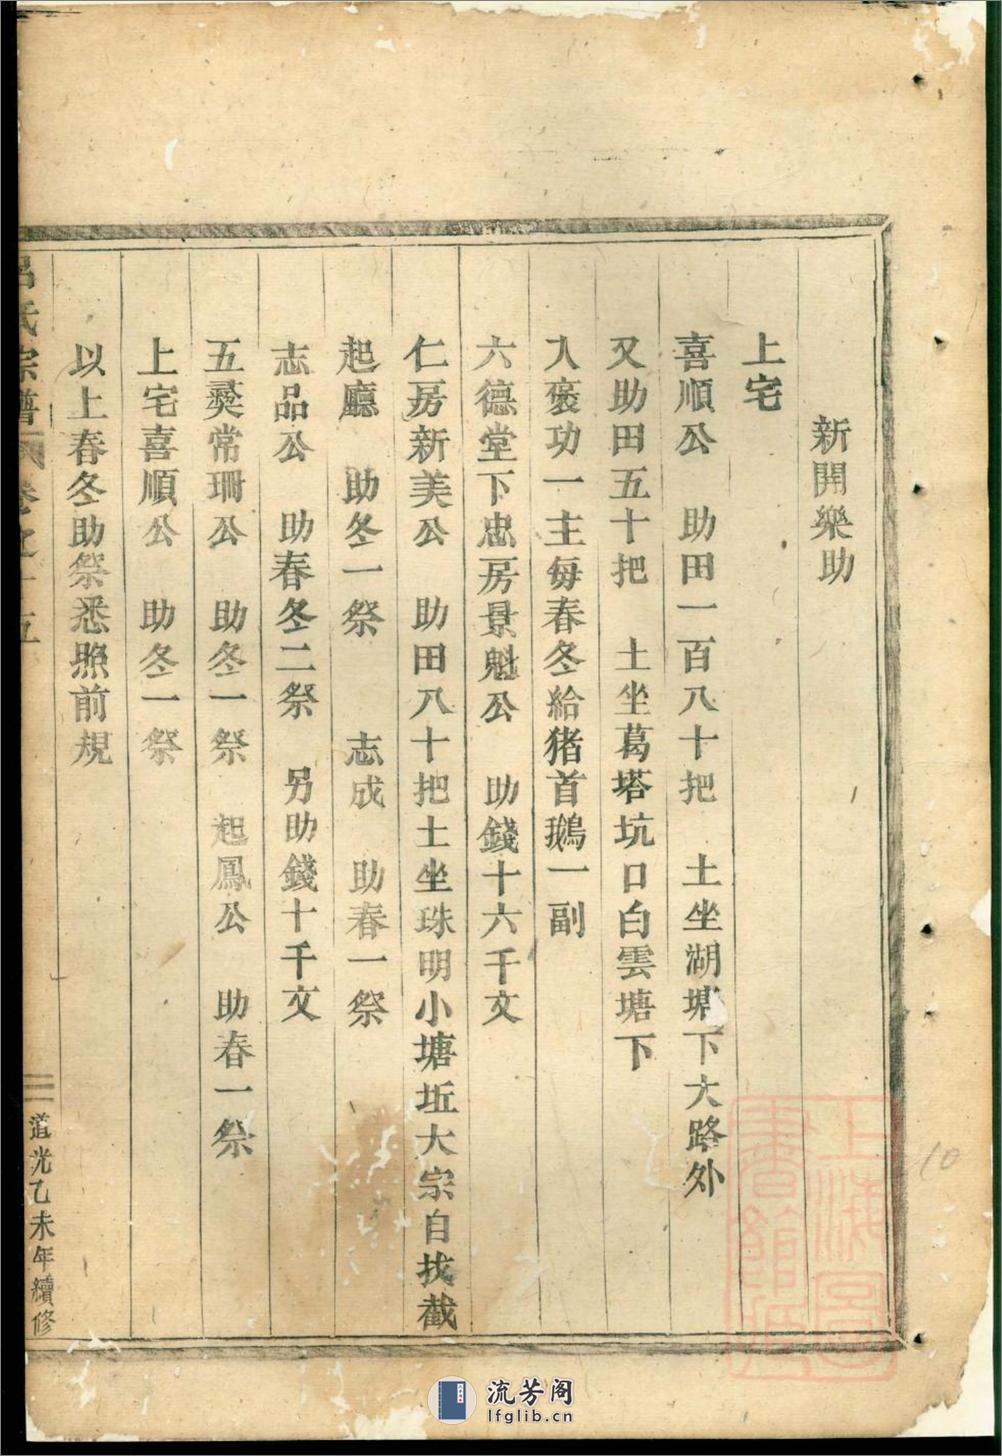 新開樂助
上宅
喜順公　助田一百八十把　土坐湖塘下大路外
又助田五十把　土坐葛塔坑口白雲塘下
入褒功一主每春冬給猪首鵝一副
六德堂下忠房景魁公　助錢十六千文
仁房新美公　助田八十把土坐珠明小塘坵大宗自找截
起廳　助冬一祭　志成　助春一祭
志品公　助春冬二祭　另助錢十千文
五羮常珊公　助冬一祭　起鳳公　助春一祭
上宅喜順公　助冬一祭
以上春冬助祭悉照前規
呂氏宗譜　卷之十五
道光乙未年續修
上海圖書館藏
10
流芳阁
lfglib.cn